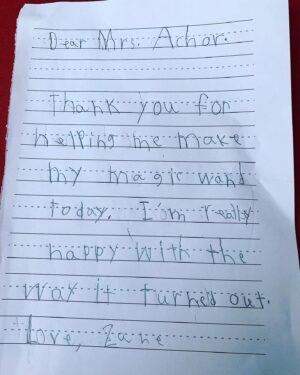 Dear Mrs. Achor.
Thank you for
helping me make
my magic wand
today. I'm really
happy with the
way it turned out.
Love, Zane